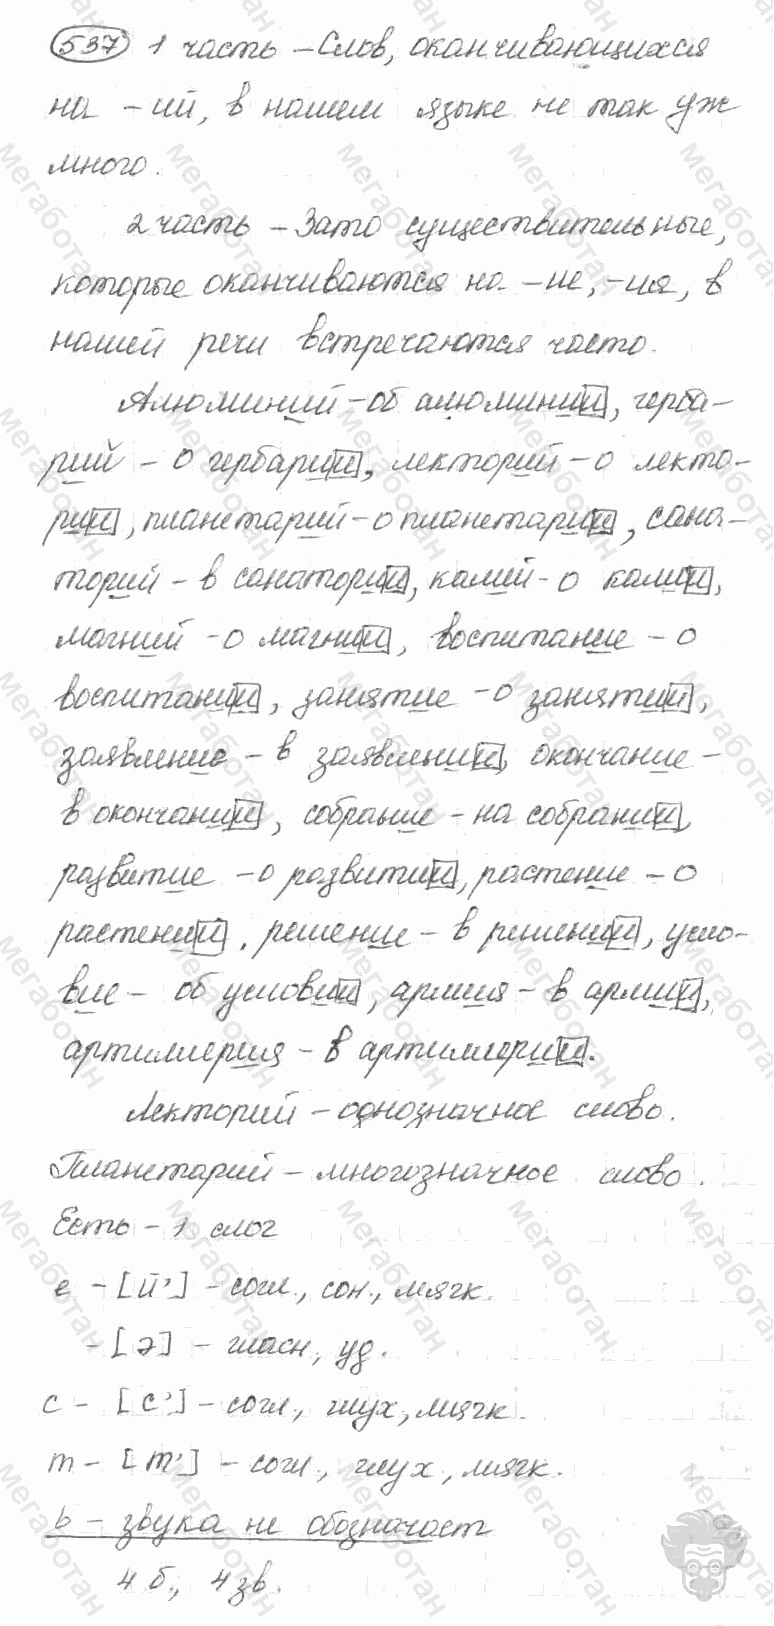 537 1 часть – Слов, оканчивающихся
на -ий, в нашем языке не так уж
много.
2 часть – Зато существительные,
которые оканчиваются на -ие, -ия, в
нашей речи встречаются часто.
Алюминий – об алюминии, герба-
рий – о гербарии, лекторий – о лекто-
рии, планетарий – о планетарии, сана-
торий – в санатории, калий – о калии,
магний – о магнии, воспитание – о
воспитании, занятие – о занятии,
заявление – в заявлении, окончание –
в окончании, собрание – на собрании,
развитие – о развитии, растение – о
растении, решение – в решении, усло-
вие – об условии, армия – в армии,
артиллерия – в артиллерии.
Лекторий – однозначное слово.
Планетарий – многозначное слово.
Есть – 1 слог
е – [й'] – согл., сон., мягк.
– [э] – гласн, уд.
с – [с'] – согл., глух, мягк.
т – [т'] – согл., глух, мягк.
ь – звука не обозначает
4 б., 4 зв.
мегаботан